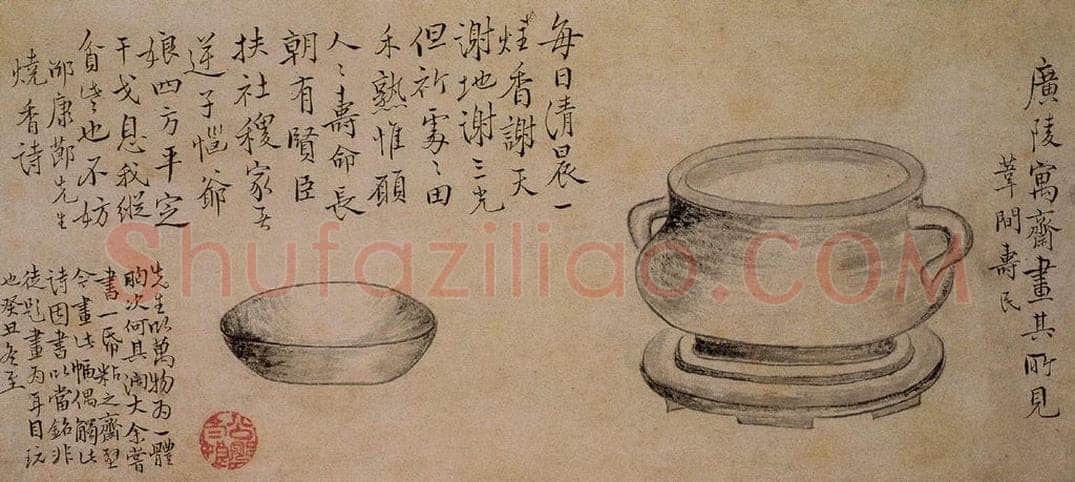 廣陵寓齋畫其所見
葦間壽民
每日清晨一
炷香謝天
謝地謝三光
但祈處〻田
禾熟惟願
人〻壽命長
朝有賢臣
扶社稷家无
逆子惱爺
娘四方平定
干戈息我縱
貧也不妨
邵康節先生
燒香詩
先生以萬物為一體
胸次何其濶大余嘗
書一帋粘之齋壁
今畫此幅偶觸此
詩因書以當銘非
徒題畫為耳目玩
也癸丑冬至
Shufaziliao.COM